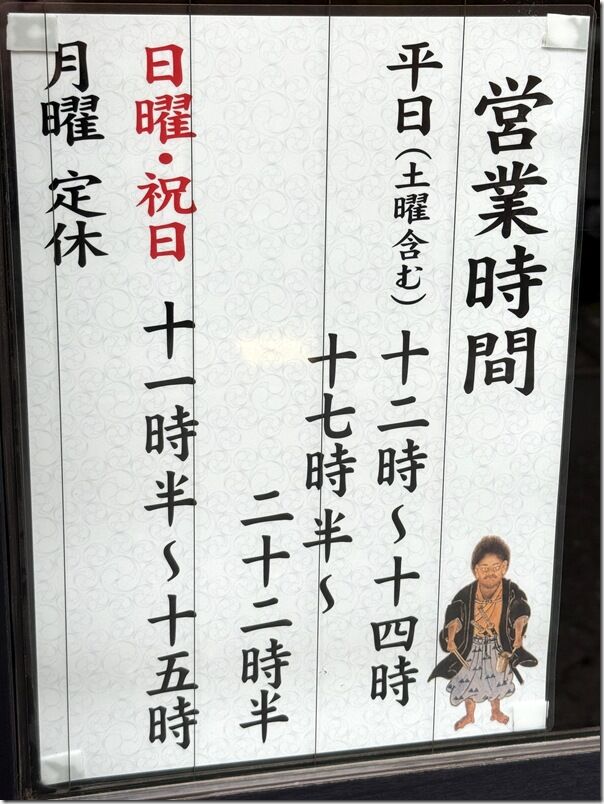 営業時間
平日(土曜含む) 十二時～十四時
十七時半～
二十二時半
日曜・祝日 十一時半～十五時
月曜 定休